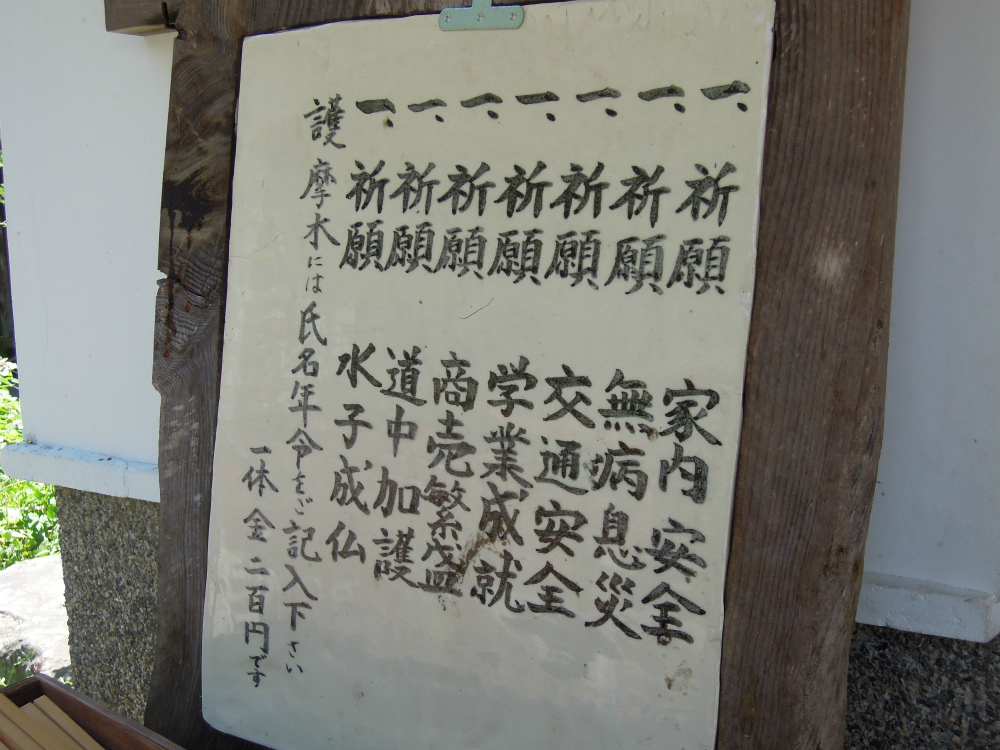 一、祈願 家内安全
一、祈願 無病息災
一、祈願 交通安全
一、祈願 学業成就
一、祈願 商売繁盛
一、祈願 道中加護
一、祈願 水子成仏
護摩木には氏名年令をご記入下さい
一休金二百円です